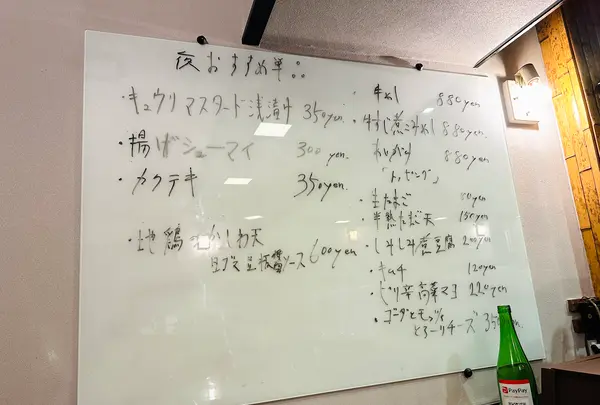 夜おすすめ単::
・キュウリマスタード浅漬け 350yen.
・揚げシューマイ 300yen.
・カクテキ 350yen.
・地鶏 かしわ天
ソース 600yen
・牛めし 880yen
・牛すじ煮込めし 880yen
880yen
「トッピング」
・生たまご 80yen
・半熟たまご天 150yen
・しみしみ煮豆腐 200yen
・キムチ 120yen
・ピリ辛高菜マヨ 220yen
・ゴーダとモッツァ
とろーりチーズ 350yen
PayPay